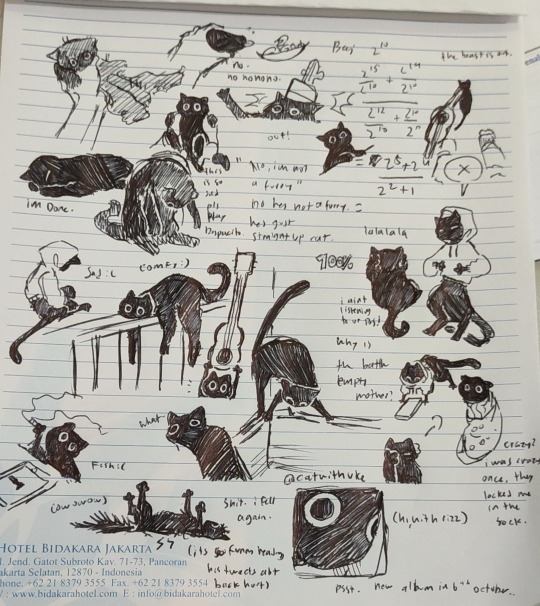 the beast is out.
no.
no nonono.
Bagi 2^10
2^15 / 2^10 + 2^14 / 2^10
2^12 / 2^10 + 2^10 / 2^10
out!
= 2^5 + 2^4
2^2 + 1
im Done.
this
is so
sad
pls
play
Despacito.
"No, im not
a furry"
no hes not a furry. =
hes just
straight up cat.
lalalala
Sad :(
comfy :)
100%
i aint
listening
to ur
why is
the bottle
empty
mother?
what
Fishie
@catwithuke
crazy?
i was crazy
once, they
locked me
in the
sock.
(owowow)
shit. i fell
again.
(hi, with rizz)
(its so funny reading
his tweets abt
back hurts)
psst. new album in 6th october..
HOTEL BIDAKARA JAKARTA
l. Jend. Gatot Subroto Kav. 71-73, Pancoran
akarta Selatan, 12870 - Indonesia
hone, +62 21 8379 3555 Fax. +62 21 8379 3554
: www.bidakarahotel.com E : info@bidakarahotel.com